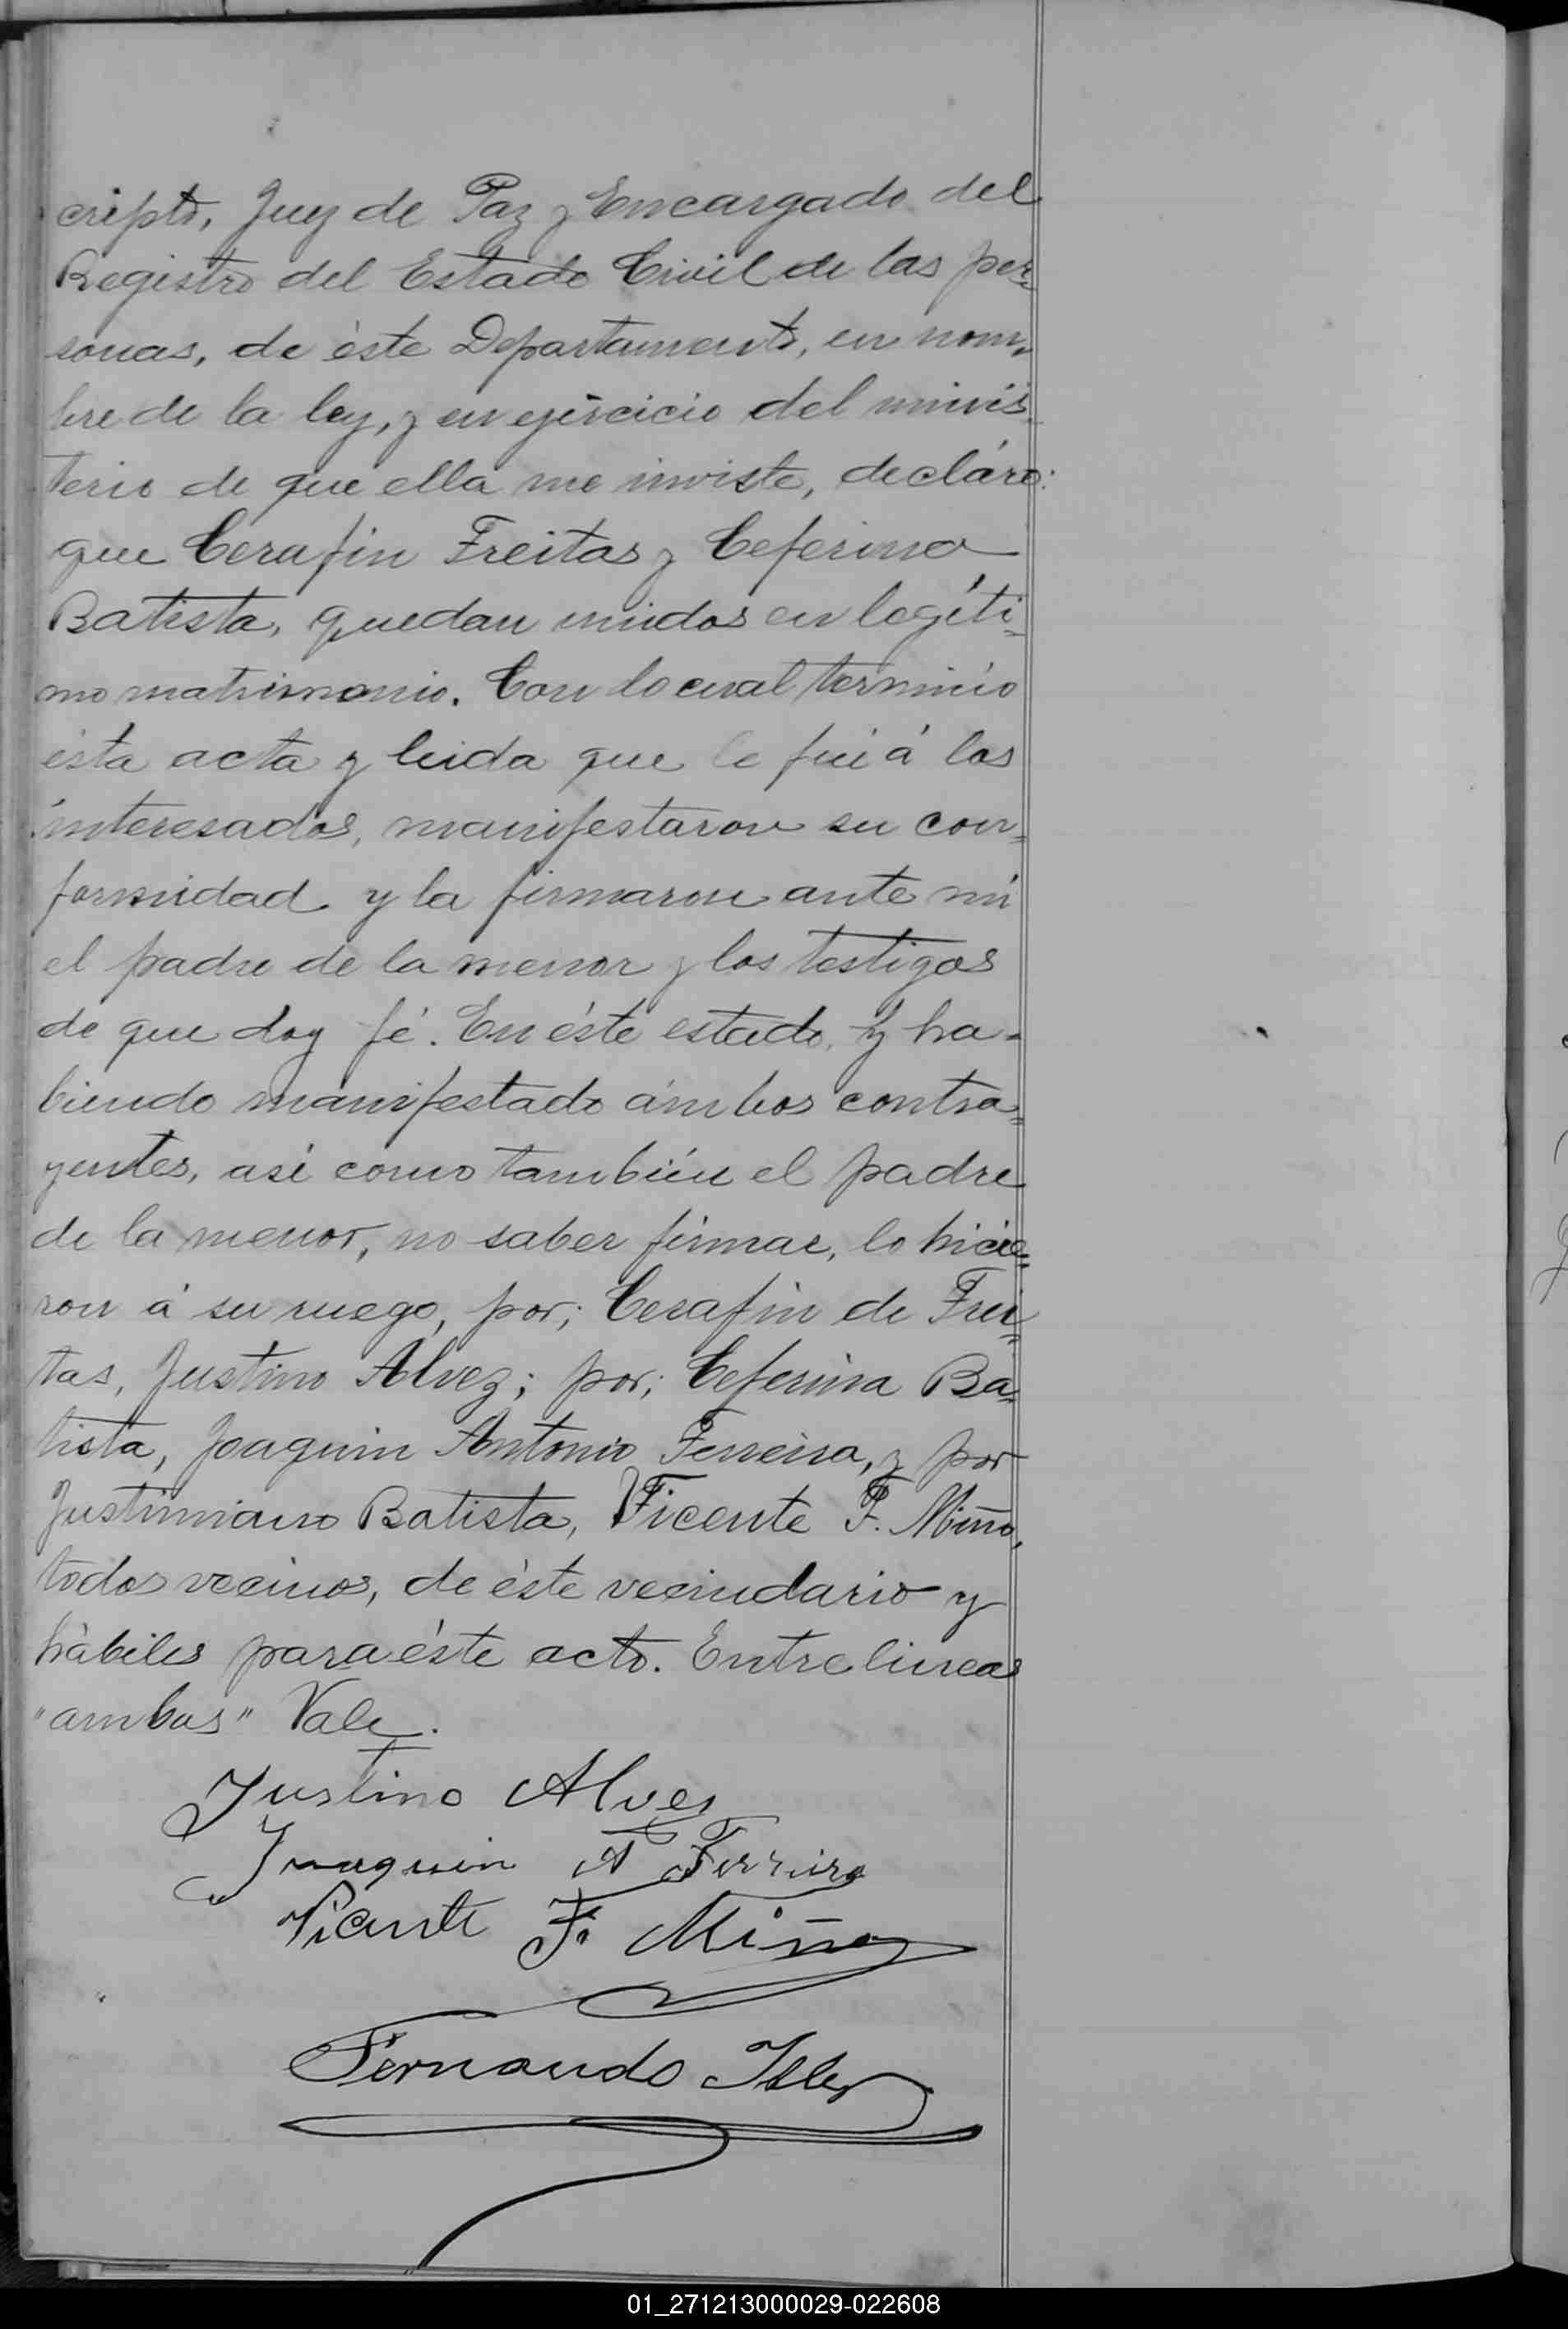 cripto, Juez de Paz y Encargado del
Registro del Estado Civil de las per=
sonas, de éste Departamento, en nom=
bre de la ley, y en ejercicio del minis=
terio de que ella me inviste, decláro:
que Cerafin Freitas y Ceferina
Batista, quedan unidos en legíti=
mo matrimonio. Con lo cual terminó
ésta acta y leida que le fué á los
interesados, manifestaron su con=
formidad y la firmaron ante mi
el padre de la menor y los testigos
de que doy fé. En éste estado, y ha=
biendo manifestado ámbos contra=
yentes, asi como también el padre
de la menor, no saber firmar, lo hicie=
ron á su ruego, por; Cerafin de Frei=
tas, Justino Alvez; por; Ceferina Ba=
tista, Joaquin Antonio Ferreira, y por
Justiniano Batista, Vicente F. Miño,
todos vecinos, de éste vecindario y
hábiles para éste acto. Entre lineas
"ambos" Vale.
Justino Alves
Juaquin A Ferreira
Vicente F. Miño
Fernando
01_271213000029-022608